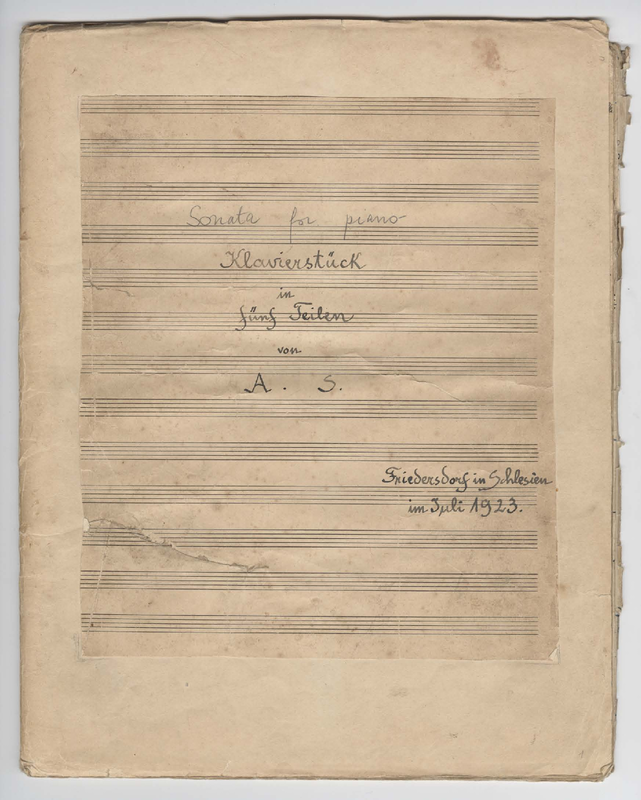 Sonata for piano
Klavierstück
in
fünf Teilen
von
A. S.
Friedersdorf in Schlesien
im Juli 1923.